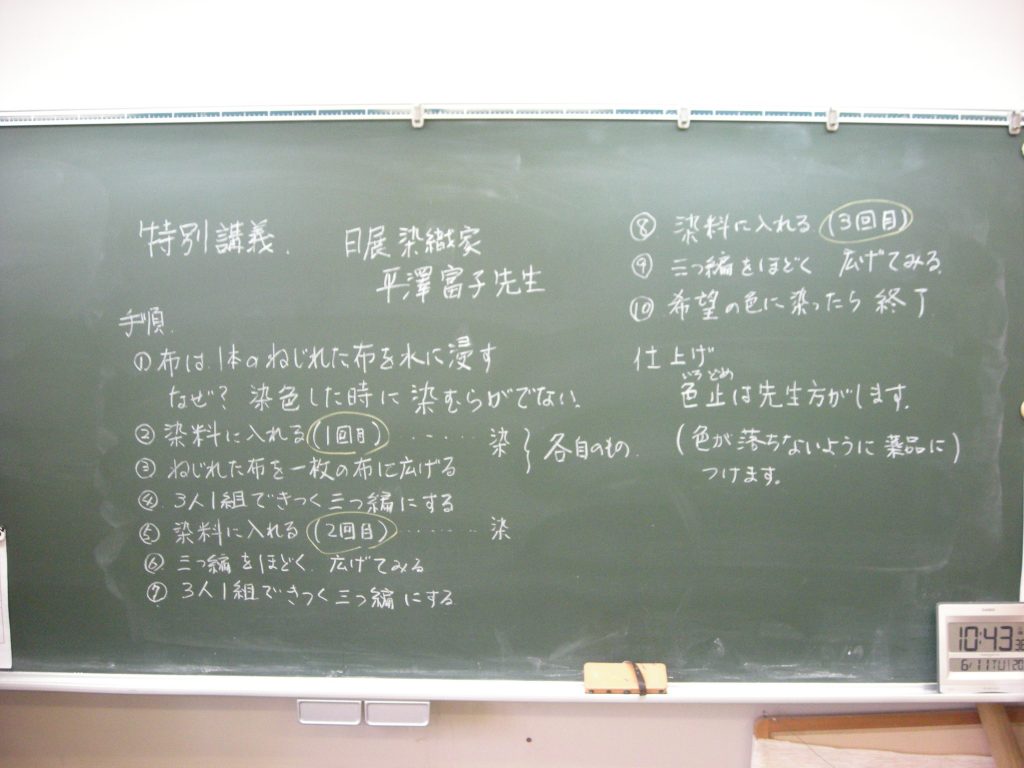 特別講義. 日展染織家
平澤富子先生
手順.
①布は、1本のねじれた布を水に浸す
なぜ? 染色した時に染むらがでない。
②染料に入れる(1回目)‥‥‥ 染
③ねじれた布を一枚の布に広げる
各自のもの.
④3人1組できつく三つ編にする
⑤染料に入れる(2回目)‥‥‥ 染
⑥三つ編をほどく. 広げてみる
⑦3人1組できつく三つ編にする
⑧染料に入れる(3回目)
⑨三つ編をほどく 広げてみる.
⑩希望の色に染ったら終了
仕上げ
いろどめ
色止は先生方がします。
(色が落ちないように薬品に)
つけます。
CASIO
10:43 36
6/11 TU